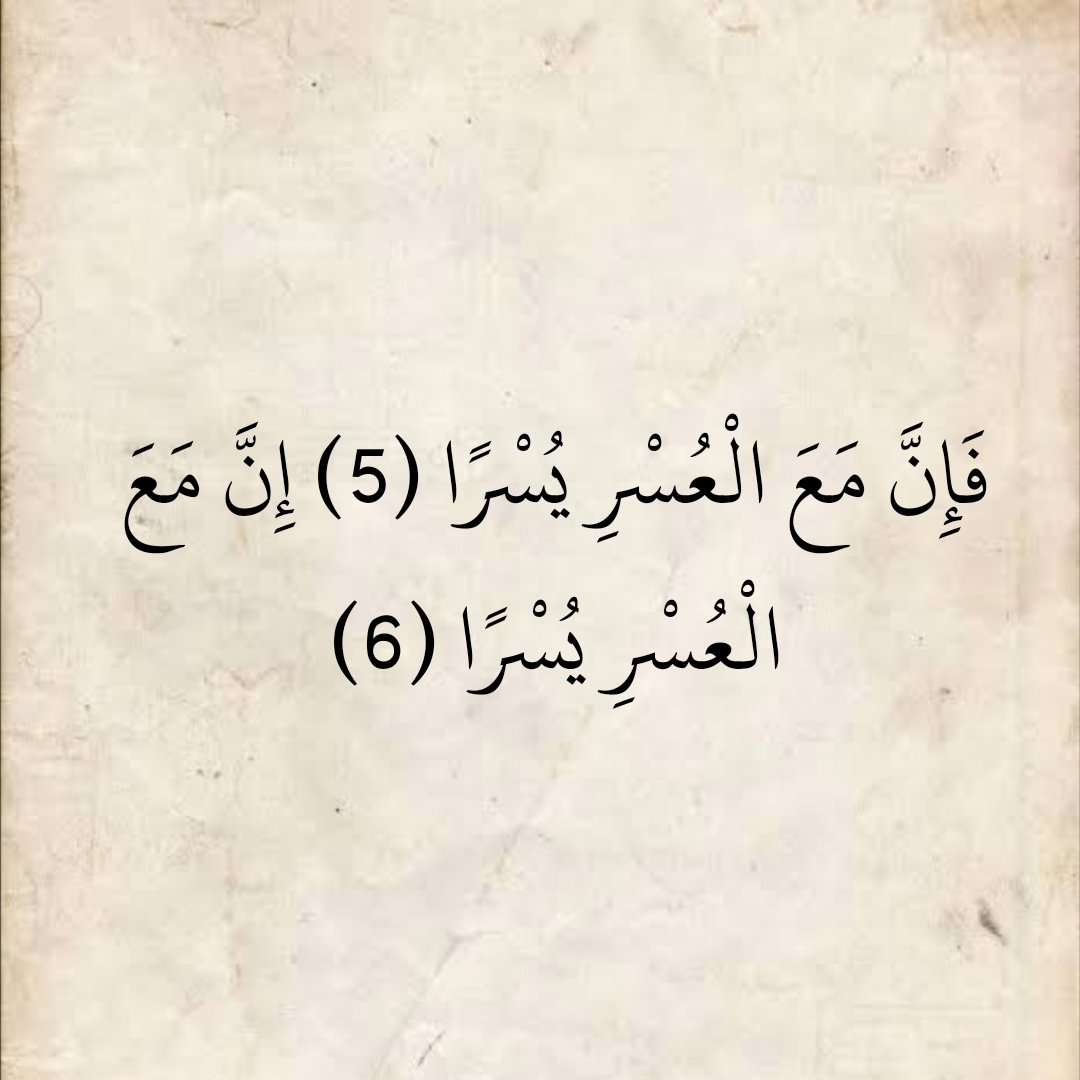 فَإِنَّ مَعَ الْعُسْرِ يُسْرًا (5) إِنَّ مَعَ
الْعُسْرِ يُسْرًا (6)